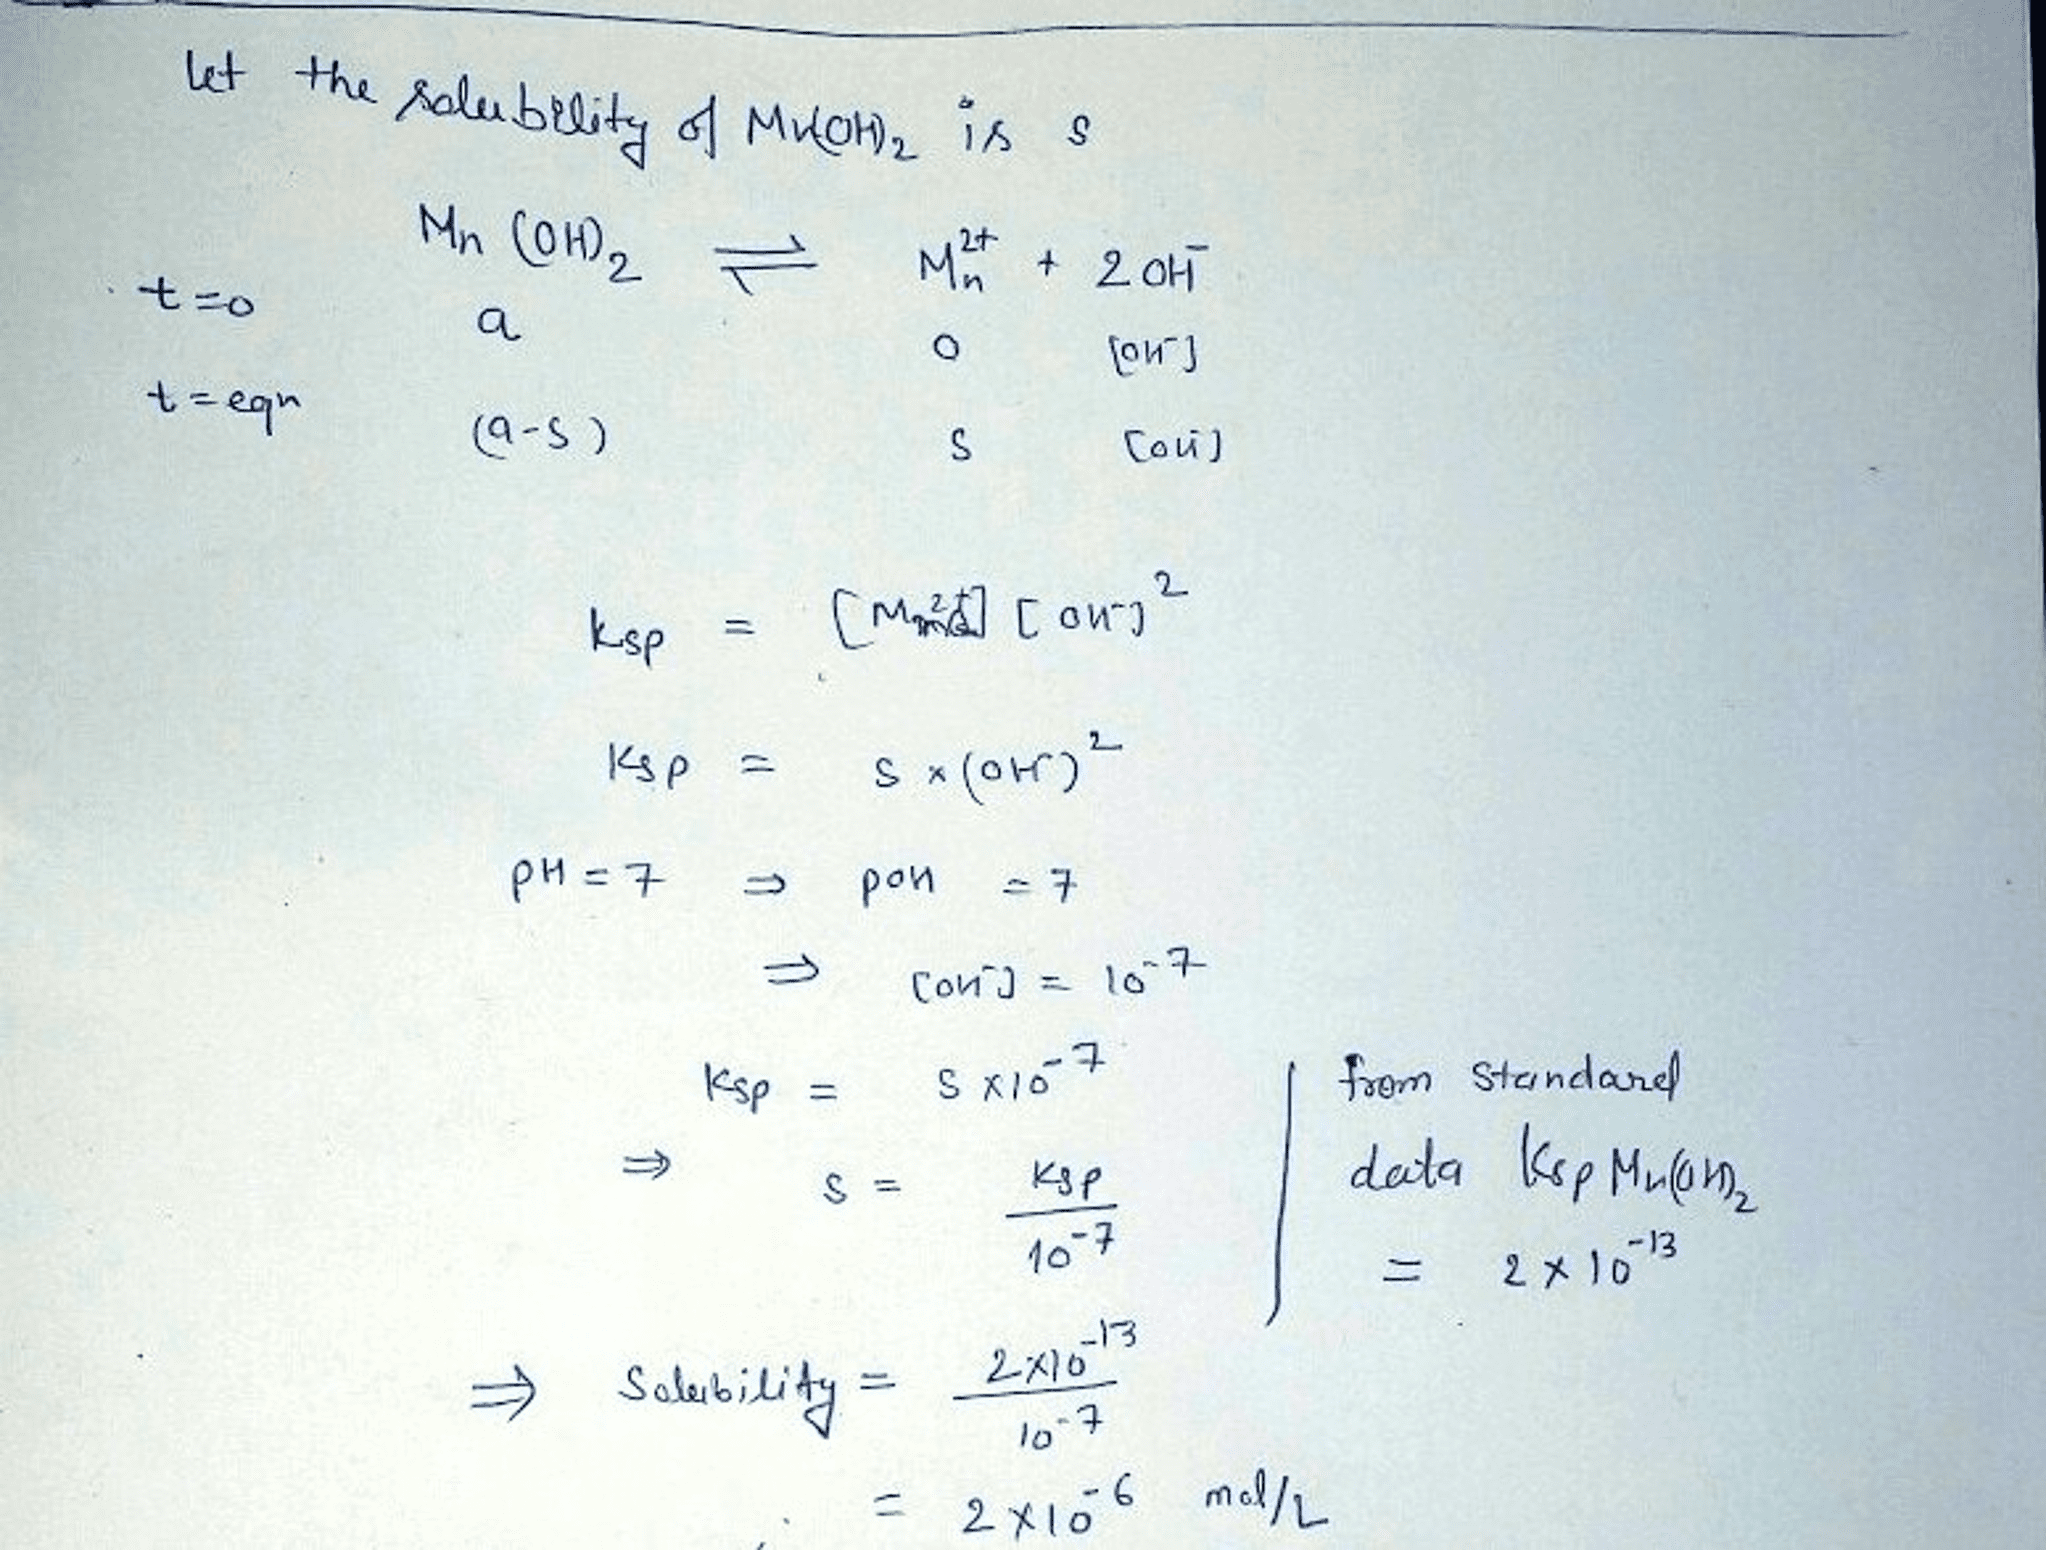 let the solubility of Mn(OH)₂ is s
Mn (OH)₂ ⇌ Mn²⁺ + 2 OH⁻
t=0 a 0 [OH⁻]
t=eqn (a-s) s [OH⁻]
Ksp = [Mn²⁺] [OH⁻]²
Ksp = s × (OH⁻)²
pH = 7 ⇒ pOH = 7
⇒ [OH⁻] = 10⁻⁷
Ksp = s × 10⁻⁷
⇒ s = Ksp / 10⁻⁷
from standard
data Ksp Mn(OH)₂
= 2 × 10⁻¹³
⇒ Solubility = 2×10⁻¹³ / 10⁻⁷
= 2 × 10⁻⁶ mol/L